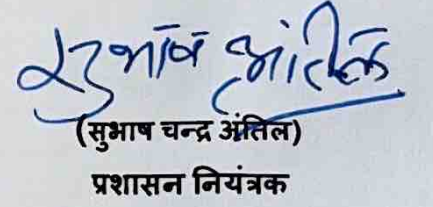 सुभाष अंतिल
(सुभाष चन्द्र अंतिल)
प्रशासन नियंत्रक